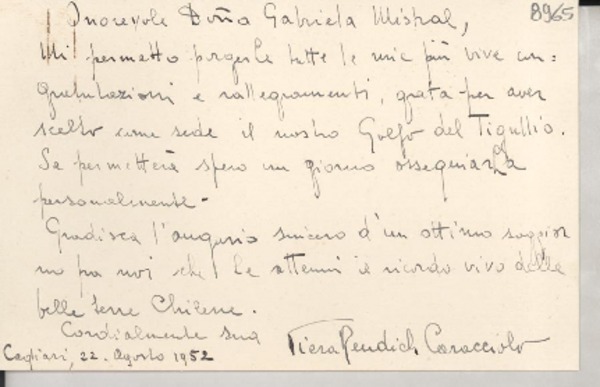 Onorevole Doña Gabriela Mistral,
8965
Mi permetto porgerLe tutte le mie più vive con=
gratulazioni e rallegramenti, grata per aver
scelto come sede il nostro Golfo del Tigullio.
Se permetterà spero un giorno ossequiarLa
personalmente.
Gradisca l'augurio sincero d'un ottimo soggior
no fra noi che Le attenui il ricordo vivo delle
belle terre Chilene.
Cordialmente sua
Piera Caracciolo
Cagliari, 22. Agosto 1952